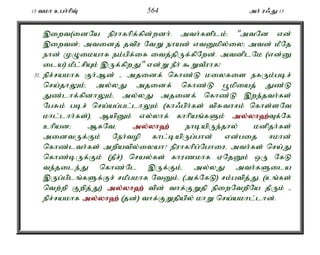 13 வமா உபர்ரீஷ் 564 அர் ரஃது 13
இறைவ(னையே நிராகரிக்கின்றனர். அவர்களிடம்: "அவனே என்
இறைவன்; அவனைத் தவிர வேறு நாயன் எவனுமில்லை; அவன் மீதே
நான் முழுமையாக நம்பிக்கை வைத்திருக்கிறேன். அவனிடமே (என்னு
டைய) மீட்சியும் இருக்கிறது" என்று நீர் கூறுவீராக!
31. நிச்சயமாக குர்ஆன் - அதனைக் கொண்டு மலைகளை நகரும்படிச்
செய்தாலும், அல்லது அதனைக் கொண்டு பூமியைத் துண்டு
துண்டாக்கினாலும், அல்லது அதனைக் கொண்டு இறந்தவர்கள்
பேசும் படிச் செய்யப்பட்டாலும் (காஃபிர்கள் விசுவாசம் கொள்ளவே
மாட்டார்கள்). ஆயினும் எல்லாக் காரியங்களும் அல்லாஹ்வுக்கே
உரியன; ஆகவே, அல்லாஹ் நாடியிருந்தால் மனிதர்கள்
அனைவருக்கும் நேர்வழி காட்டியிருப்பான் என்பதை ஈமான்
கொண்டவர்கள் அறியவில்லையா? நிராகரிப்போரை, அவர்கள் செய்து
கொண்டிருக்கும் (தீச்) செயல்கள் காரணமாக ஏதேனும் ஒரு கேடு
வந்தடைந்து கொண்டே இருக்கும், அல்லது அவர்களுடைய
இருப்பிடங்களுக்குச் சமீபமாக வேனும், (அக்கேடு) சம்பவித்து, (உங்கள்
வெற்றி குறித்து) அல்லாஹ் வின் வாக்குறுதி நிறைவேறியே தீரும் -
நிச்சயமாக அல்லாஹ் (தன்) வாக்குறுதியில் மாறு செய்யமாட்டான்.